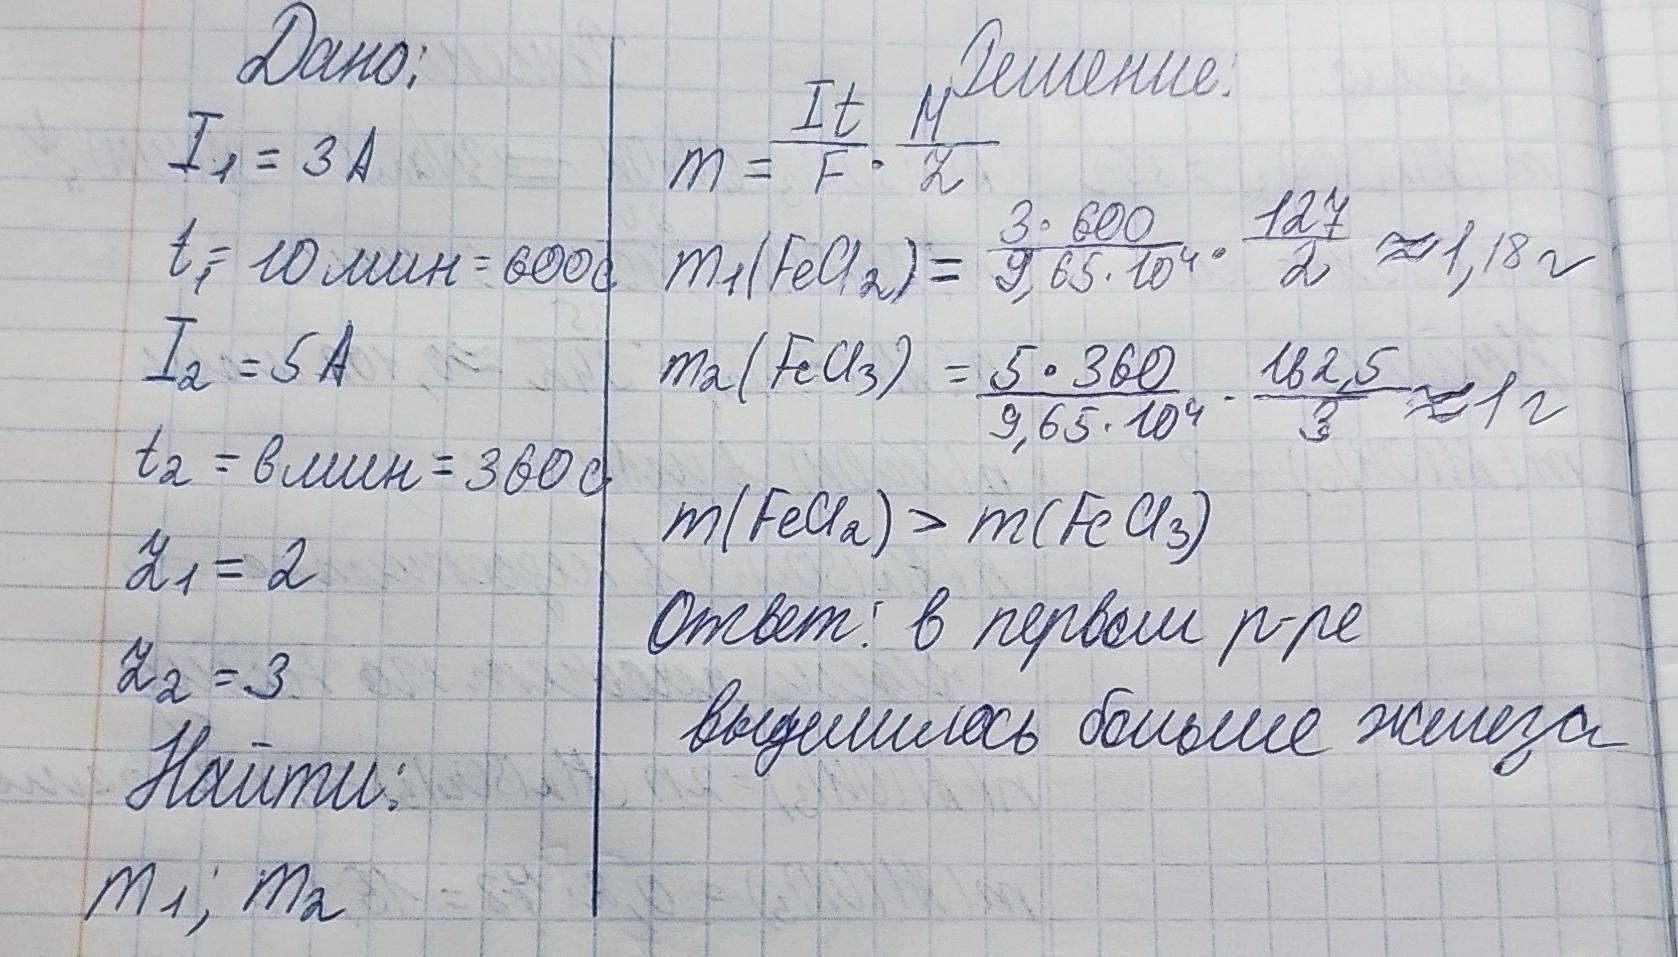 Дано:
I₁ = 3 А
t₁ = 10 мин = 600 с
I₂ = 5 А
t₂ = 6 мин = 360 с
Z₁ = 2
Z₂ = 3
Найти:
m₁; m₂
Решение:
m = It/F · M/Z
m₁(FeCl₂) = 3·600/9,65·10⁴ · 127/2 ≈ 1,18 г
m₂(FeCl₃) = 5·360/9,65·10⁴ · 162,5/3 ≈ 1 г
m(FeCl₂) > m(FeCl₃)
Ответ: в первом р-ре
выделилось больше железа